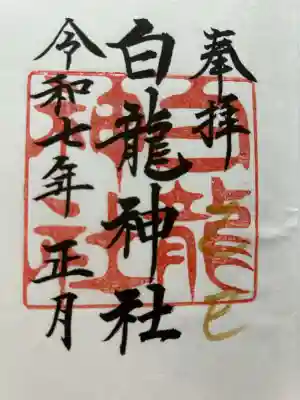 奉拝
乙巳
白龍神社
令和七年 正月
白龍
神社